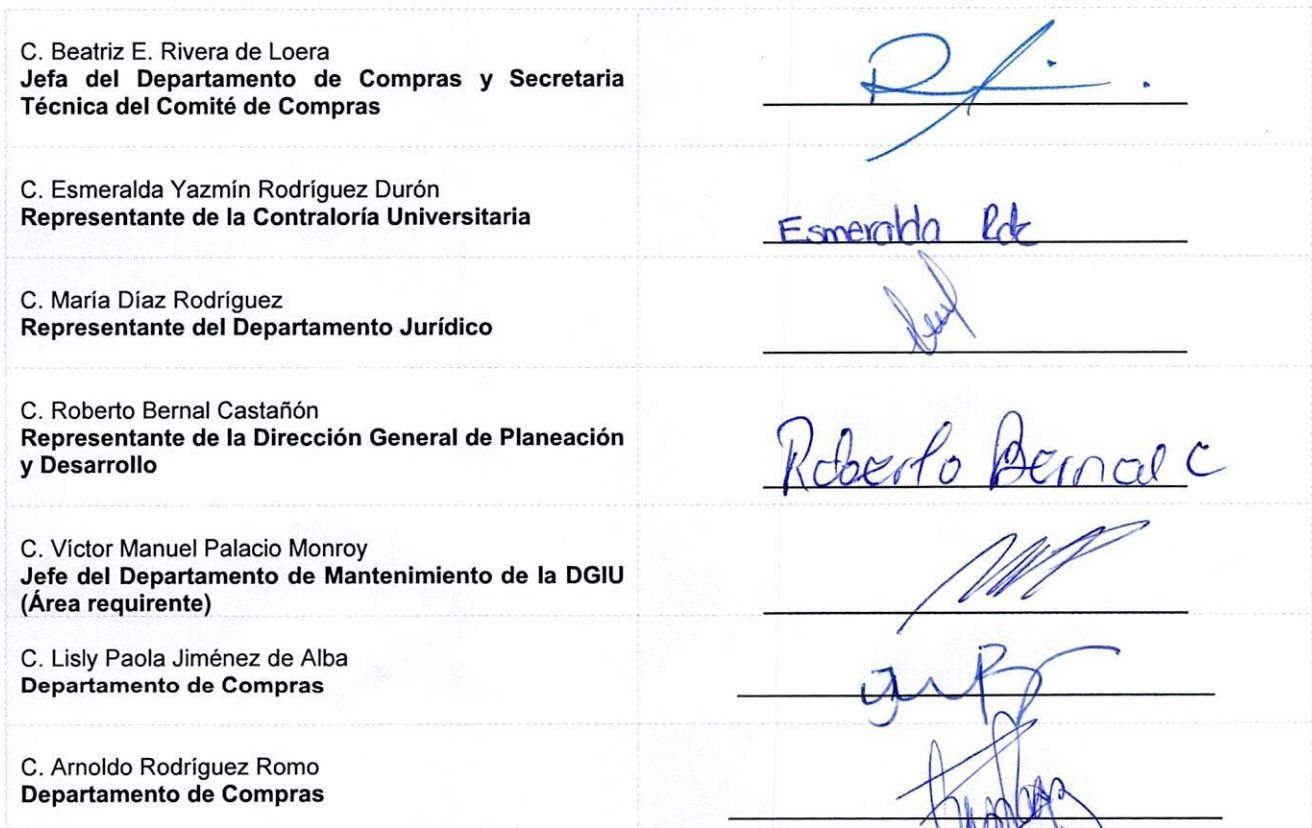 C. Beatriz E. Rivera de Loera
Jefa del Departamento de Compras y Secretaria
Técnica del Comité de Compras
C. Esmeralda Yazmín Rodríguez Durón
Representante de la Contraloría Universitaria
Esmeralda
C. María Díaz Rodríguez
Representante del Departamento Jurídico
C. Roberto Bernal Castañón
Representante de la Dirección General de Planeación
y Desarrollo
Roberto Bernal C
C. Víctor Manuel Palacio Monroy
Jefe del Departamento de Mantenimiento de la DGIU
(Área requirente)
C. Lisly Paola Jiménez de Alba
Departamento de Compras
C. Arnoldo Rodríguez Romo
Departamento de Compras